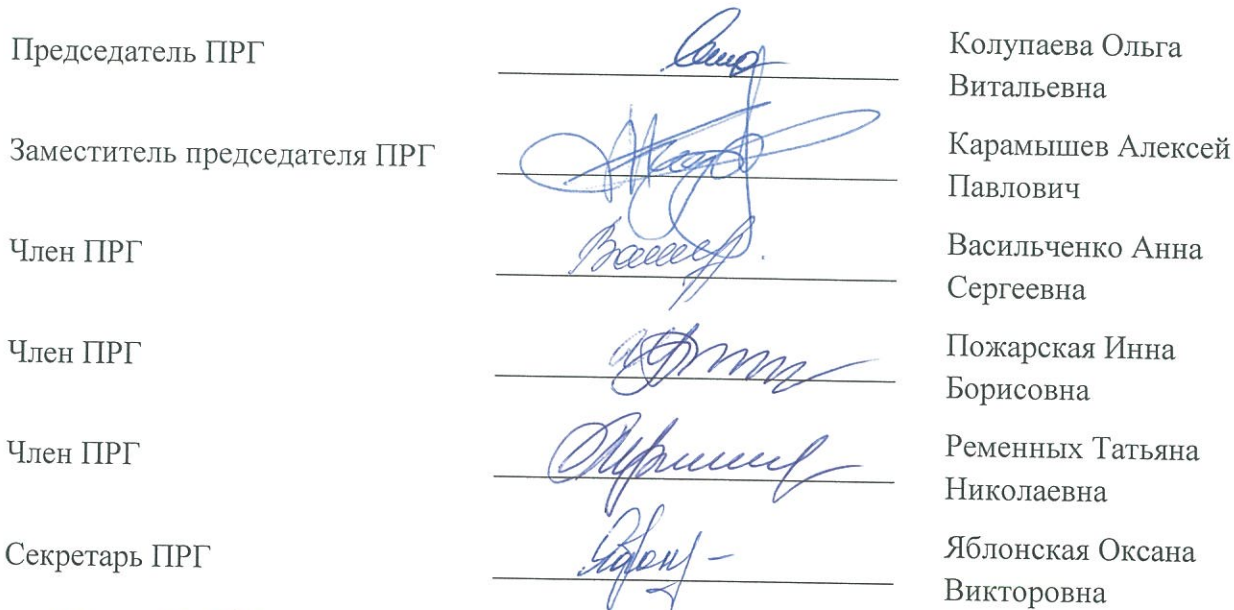 Председатель ПРГ
Колупаева Ольга
Витальевна
Заместитель председателя ПРГ
Карамышев Алексей
Павлович
Член ПРГ
Васильченко Анна
Сергеевна
Член ПРГ
Пожарская Инна
Борисовна
Член ПРГ
Ременных Татьяна
Николаевна
Секретарь ПРГ
Яблонская Оксана
Викторовна